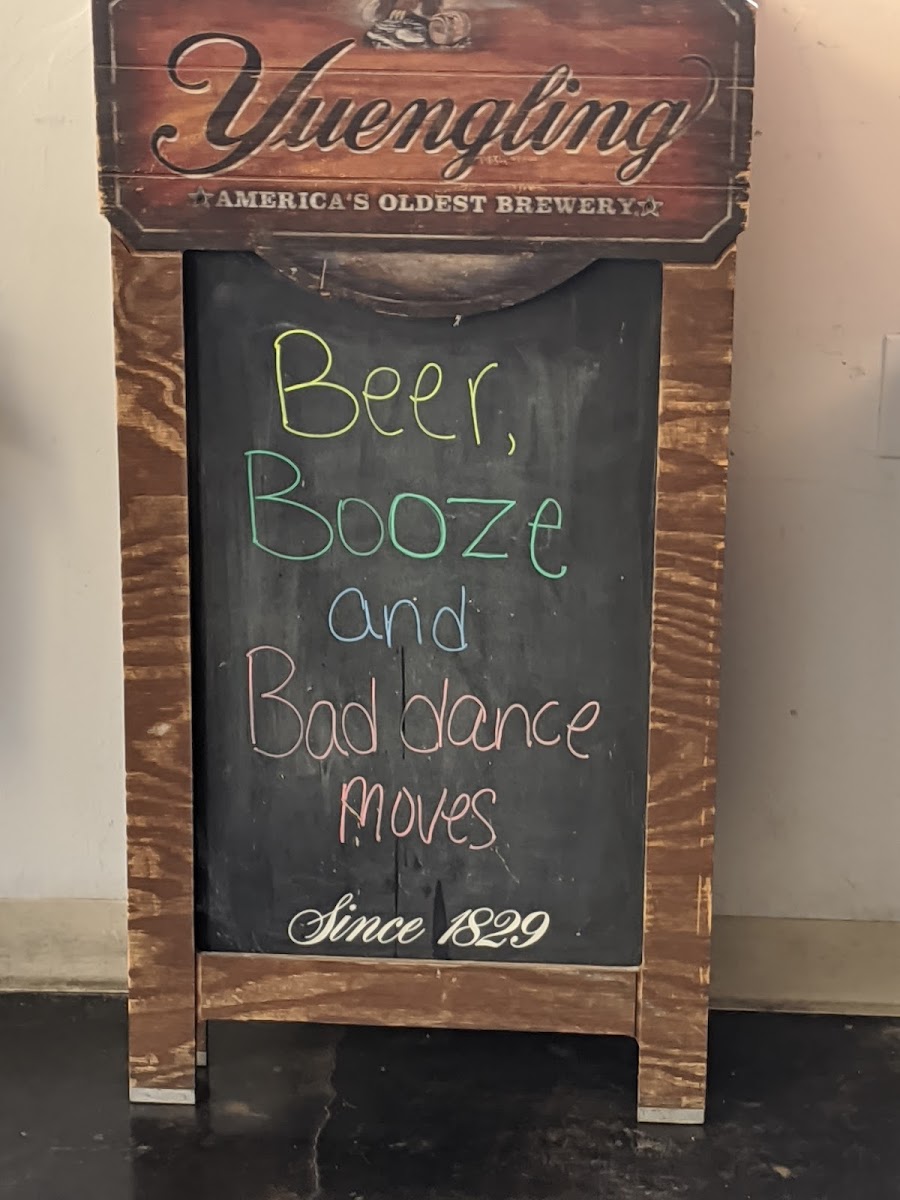 Yuengling
AMERICA'S OLDEST BREWERY
Beer,
Booze
and
Bad dance
moves
Since 1829